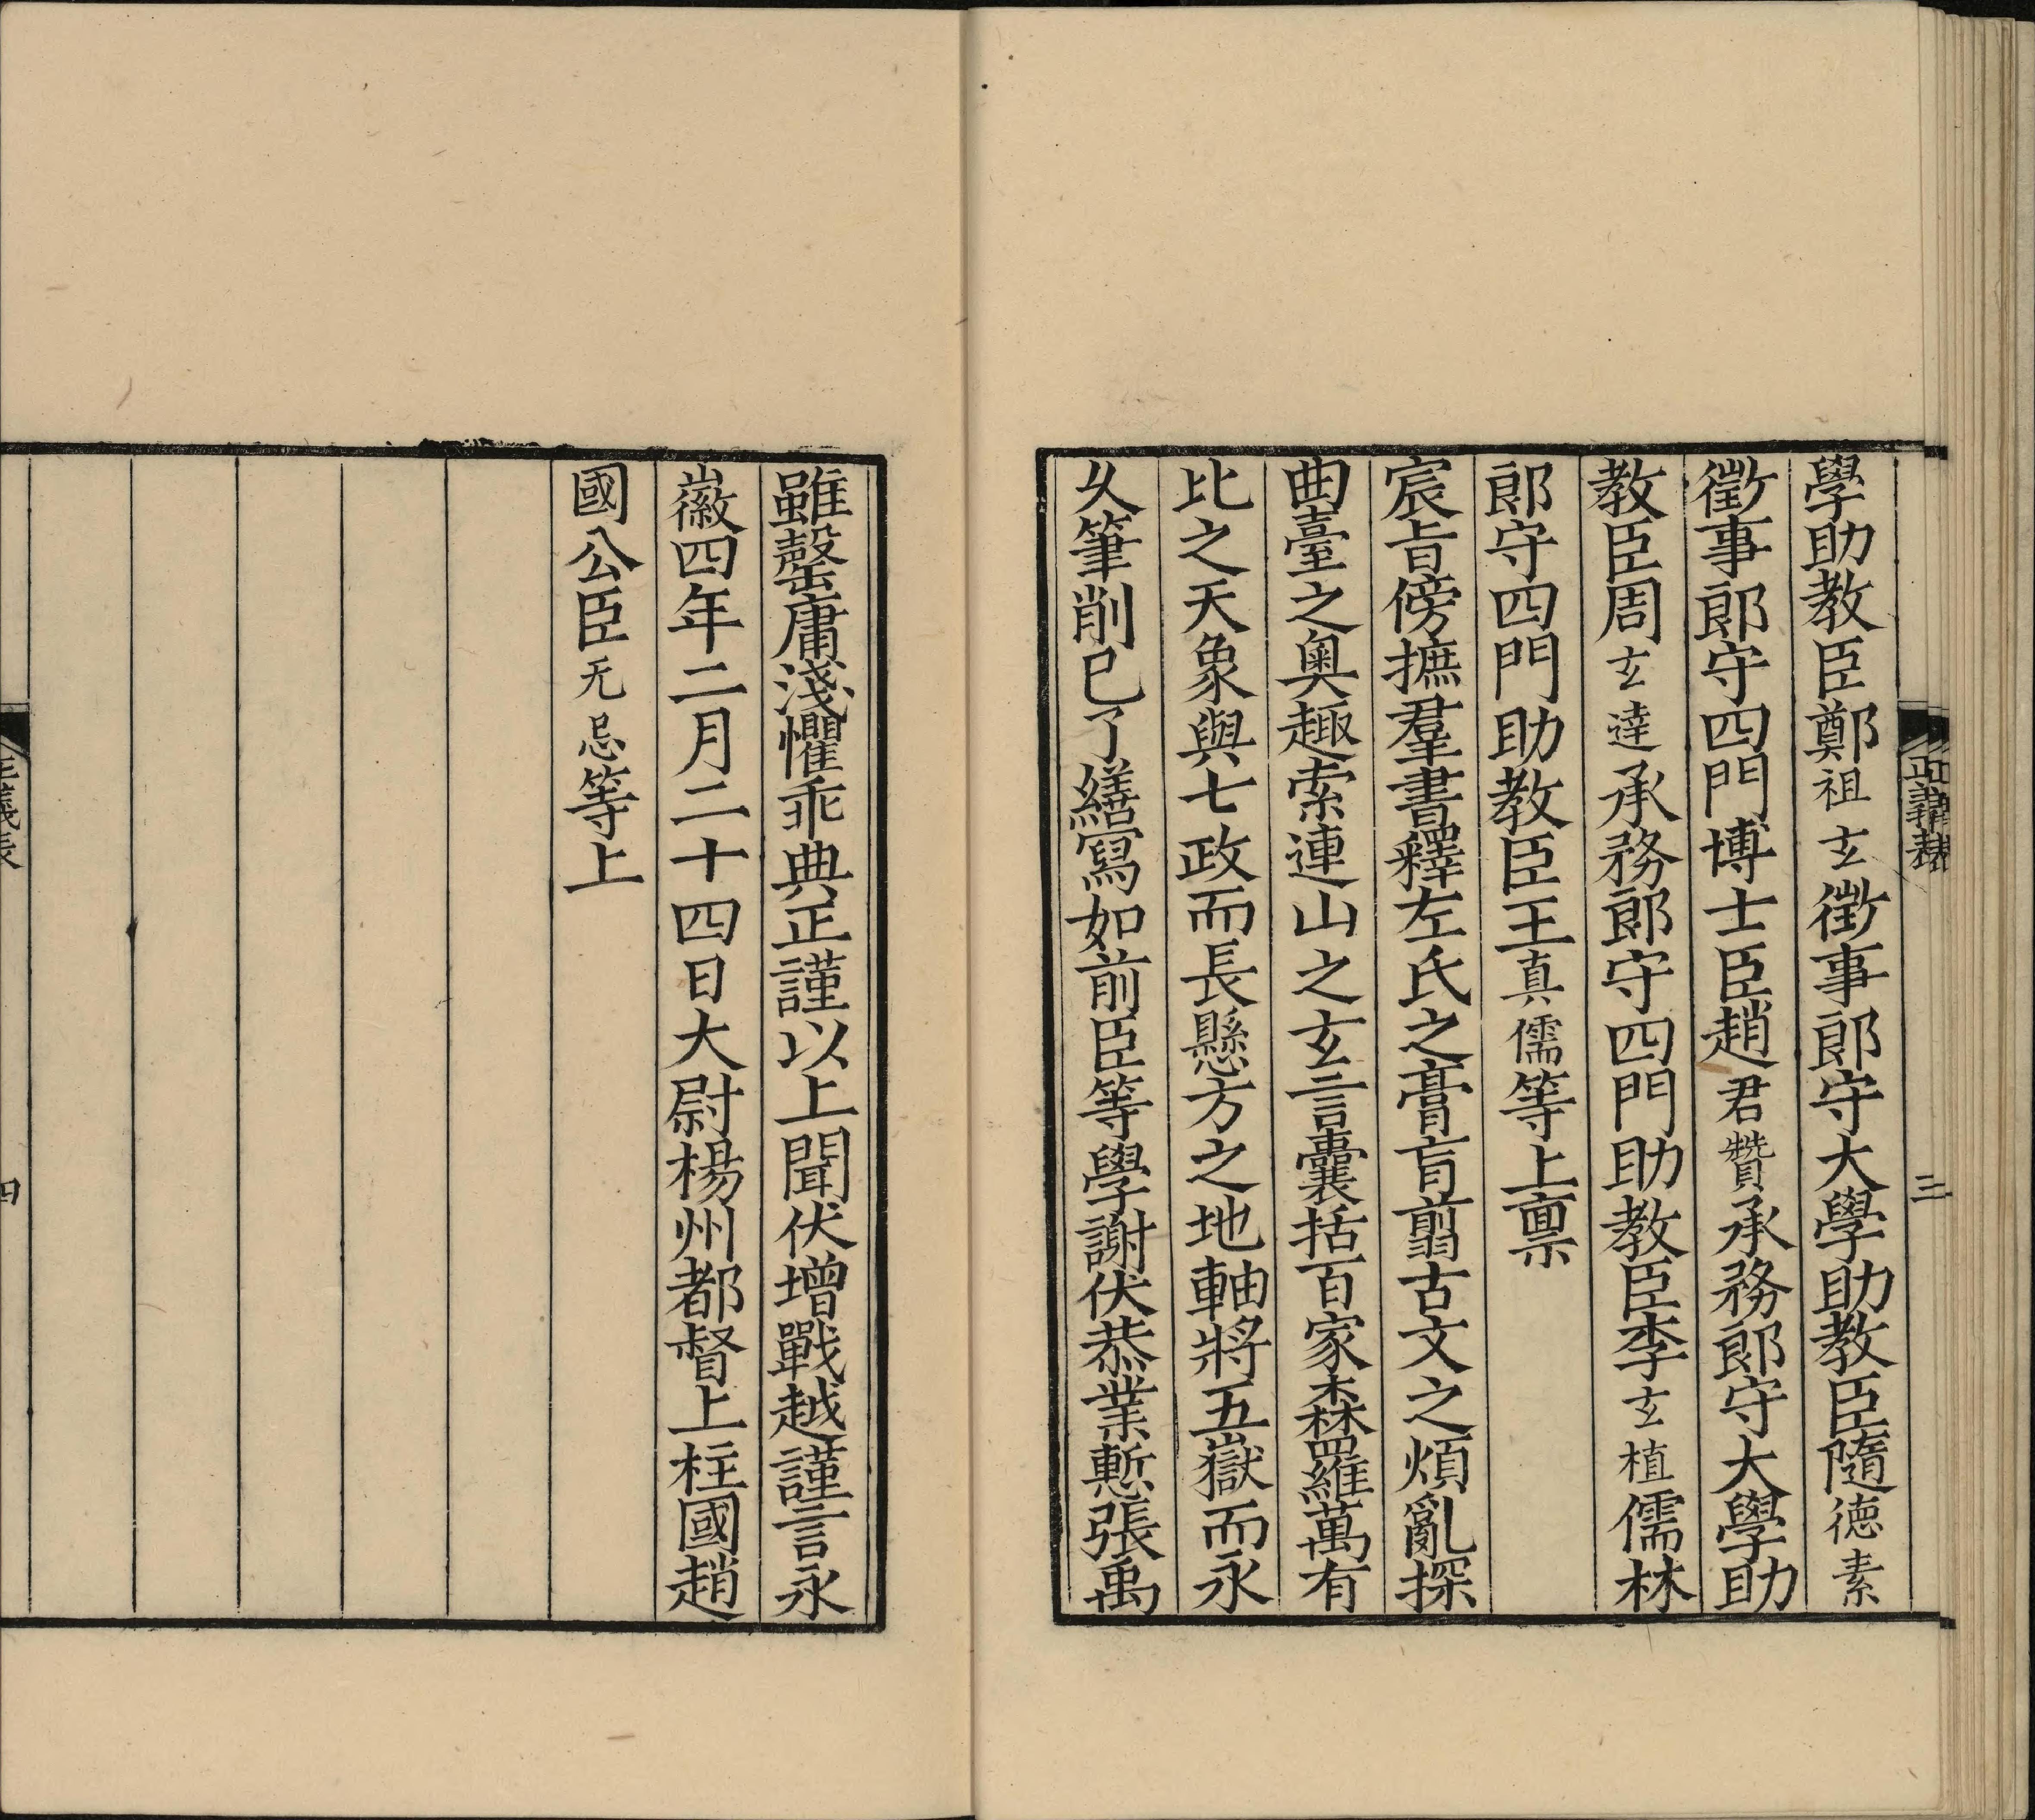 正義表
三
學助教臣鄭祖玄徵事郎守大學助教臣隨德素
徵事郎守四門博士臣趙君贊承務郎守大學助
教臣周玄達承務郎守四門助教臣李玄植儒林
郎守四門助教臣王真儒等上稟
宸旨傍摭羣書釋左氏之膏肓翦古文之煩亂探
曲臺之奧趣索連山之玄言囊括百家森羅萬有
比之天象與七政而長懸方之地軸將五嶽而永
久筆削已了繕寫如前臣等學謝伏恭業慙張禹
雖罄庸淺懼乖典正謹以上聞伏增戰越謹言永
徽四年二月二十四日大尉楊州都督上柱國趙
國公臣无忌等上
正義表
四